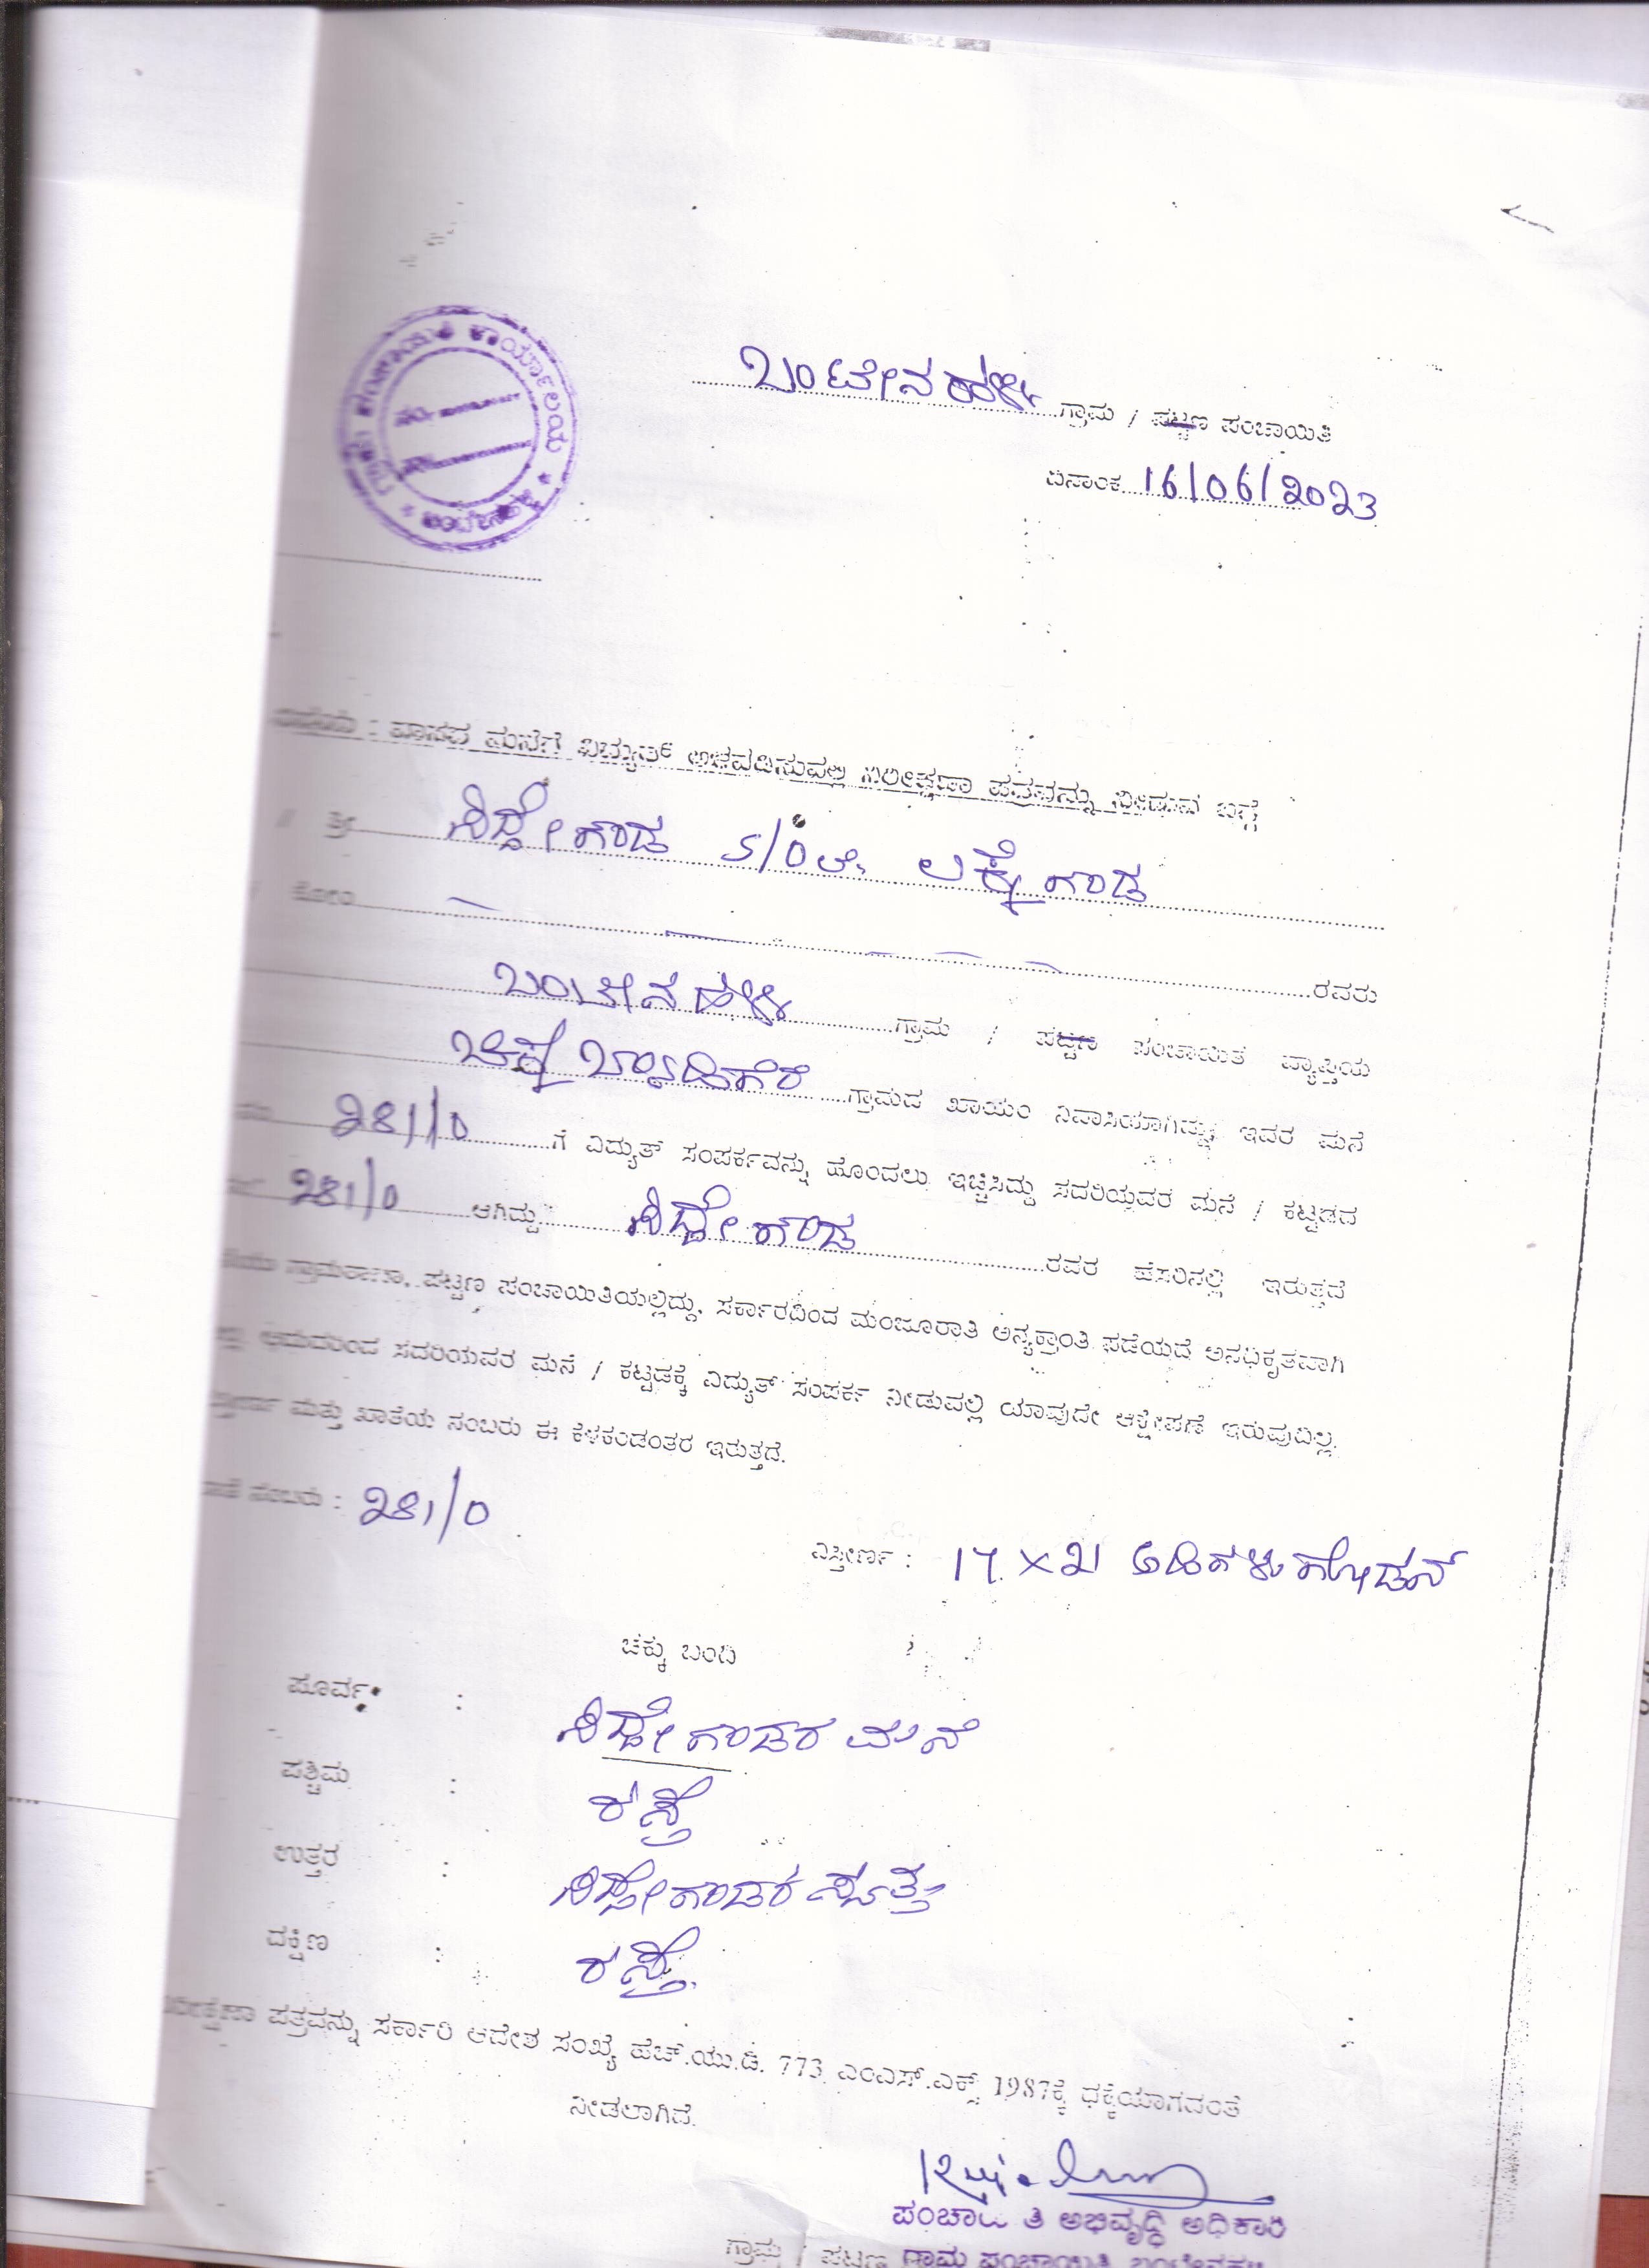 ಗ್ರಾಮ ಪಂಚಾಯಿತಿ ಕಾರ್ಯಾಲಯ * ಬಂಟೇನಹಳ್ಳಿ *
ಬಂಟೇನಹಳ್ಳಿ ಗ್ರಾಮ / ಪಟ್ಟಣ ಪಂಚಾಯಿತಿ
ದಿನಾಂಕ 16/06/2023
ವಾಸದ ಮನೆಗೆ ವಿದ್ಯುತ್ ಅಳವಡಿಸುವಲ್ಲಿ ನಿರೀಕ್ಷಣಾ ಪತ್ರವನ್ನು ನೀಡುವ ಬಗ್ಗೆ
ಶ್ರೀ ಸಿದ್ದೇಗೌಡ S/O ಲೇ. ಲಕ್ಕೇಗೌಡ
ಕೋಂ ರವರು
ಬಂಟೇನಹಳ್ಳಿ ಗ್ರಾಮ / ಪಟ್ಟಣ ಪಂಚಾಯಿತಿ ವ್ಯಾಪ್ತಿಯ
ಚಿಕ್ಕಬ್ಯಾಡಿಗೆರೆ ಗ್ರಾಮದ ಖಾಯಂ ನಿವಾಸಿಯಾಗಿದ್ದು, ಇವರ ಮನೆ
281/0 ಗೆ ವಿದ್ಯುತ್ ಸಂಪರ್ಕವನ್ನು ಹೊಂದಲು ಇಚ್ಛಿಸಿದ್ದು ಸದರಿಯವರ ಮನೆ / ಕಟ್ಟಡದ
281/0 ಆಗಿದ್ದು ಸಿದ್ದೇಗೌಡ ರವರ ಹೆಸರಿನಲ್ಲಿ ಇರುತ್ತದೆ
ಪಟ್ಟಣ ಪಂಚಾಯಿತಿಯಲ್ಲಿದ್ದು, ಸರ್ಕಾರದಿಂದ ಮಂಜೂರಾತಿ ಅನ್ಯಕ್ರಾಂತಿ ಪಡೆಯದೆ ಅನಧಿಕೃತವಾಗಿ
ಆದುದರಿಂದ ಸದರಿಯವರ ಮನೆ / ಕಟ್ಟಡಕ್ಕೆ ವಿದ್ಯುತ್ ಸಂಪರ್ಕ ನೀಡುವಲ್ಲಿ ಯಾವುದೇ ಆಕ್ಷೇಪಣೆ ಇರುವುದಿಲ್ಲ.
ಮತ್ತು ಖಾತೆಯ ನಂಬರು ಈ ಕೆಳಕಂಡಂತರ ಇರುತ್ತದೆ.
ನಂಬರು : 281/0
ವಿಸ್ತೀರ್ಣ : 17 X 21 ಅಡಿಗಳು ಗೋಡನ್
ಚಕ್ಕು ಬಂದಿ
ಪೂರ್ವ : ಸಿದ್ದೇಗೌಡರ ಮನೆ
ಪಶ್ಚಿಮ : ರಸ್ತೆ
ಉತ್ತರ : ಸಿದ್ದೇಗೌಡರ ಸ್ವತ್ತು
ದಕ್ಷಿಣ : ರಸ್ತೆ.
ಪತ್ರವನ್ನು ಸರ್ಕಾರಿ ಆದೇಶ ಸಂಖ್ಯೆ ಹೆಚ್.ಯು.ಡಿ. 773 ಎಂಎಸ್.ಎಕ್ಸ್ 1987ಕ್ಕೆ ಧಕ್ಕೆಯಾಗದಂತೆ
ನೀಡಲಾಗಿದೆ.
ಪಂಚಾಯಿತಿ ಅಭಿವೃದ್ಧಿ ಅಧಿಕಾರಿ
ಗ್ರಾಮ / ಪಟ್ಟಣ ಗ್ರಾಮ ಪಂಚಾಯಿತಿ, ಬಂಟೇನಹಳ್ಳಿ